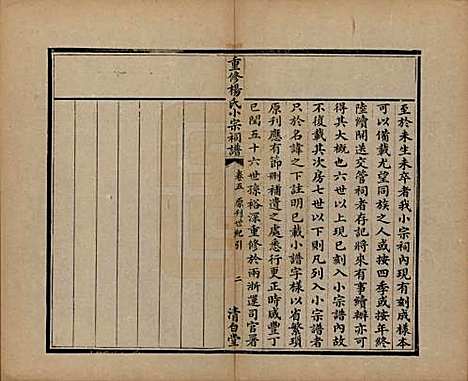 至於未生未卒者我小宗祠內現有刻成樣本
可以備載尤望同族之人或按四季或按年終
陸續開送交管祠者存記將來有事續辦亦可
得其大概也六世以上現已刻入小宗譜內故
不復載其次房七世以下則凡列入小宗譜者
只於名諱之下註明已載小譜字樣以省繁瑣
原刊應有節刪補遺之處悉行更正時咸豐丁
巳閏五十六世孫裕深重修於兩浙運司官署
重修楊氏小宗祠譜
卷五 原刊世紀引
二
清白堂